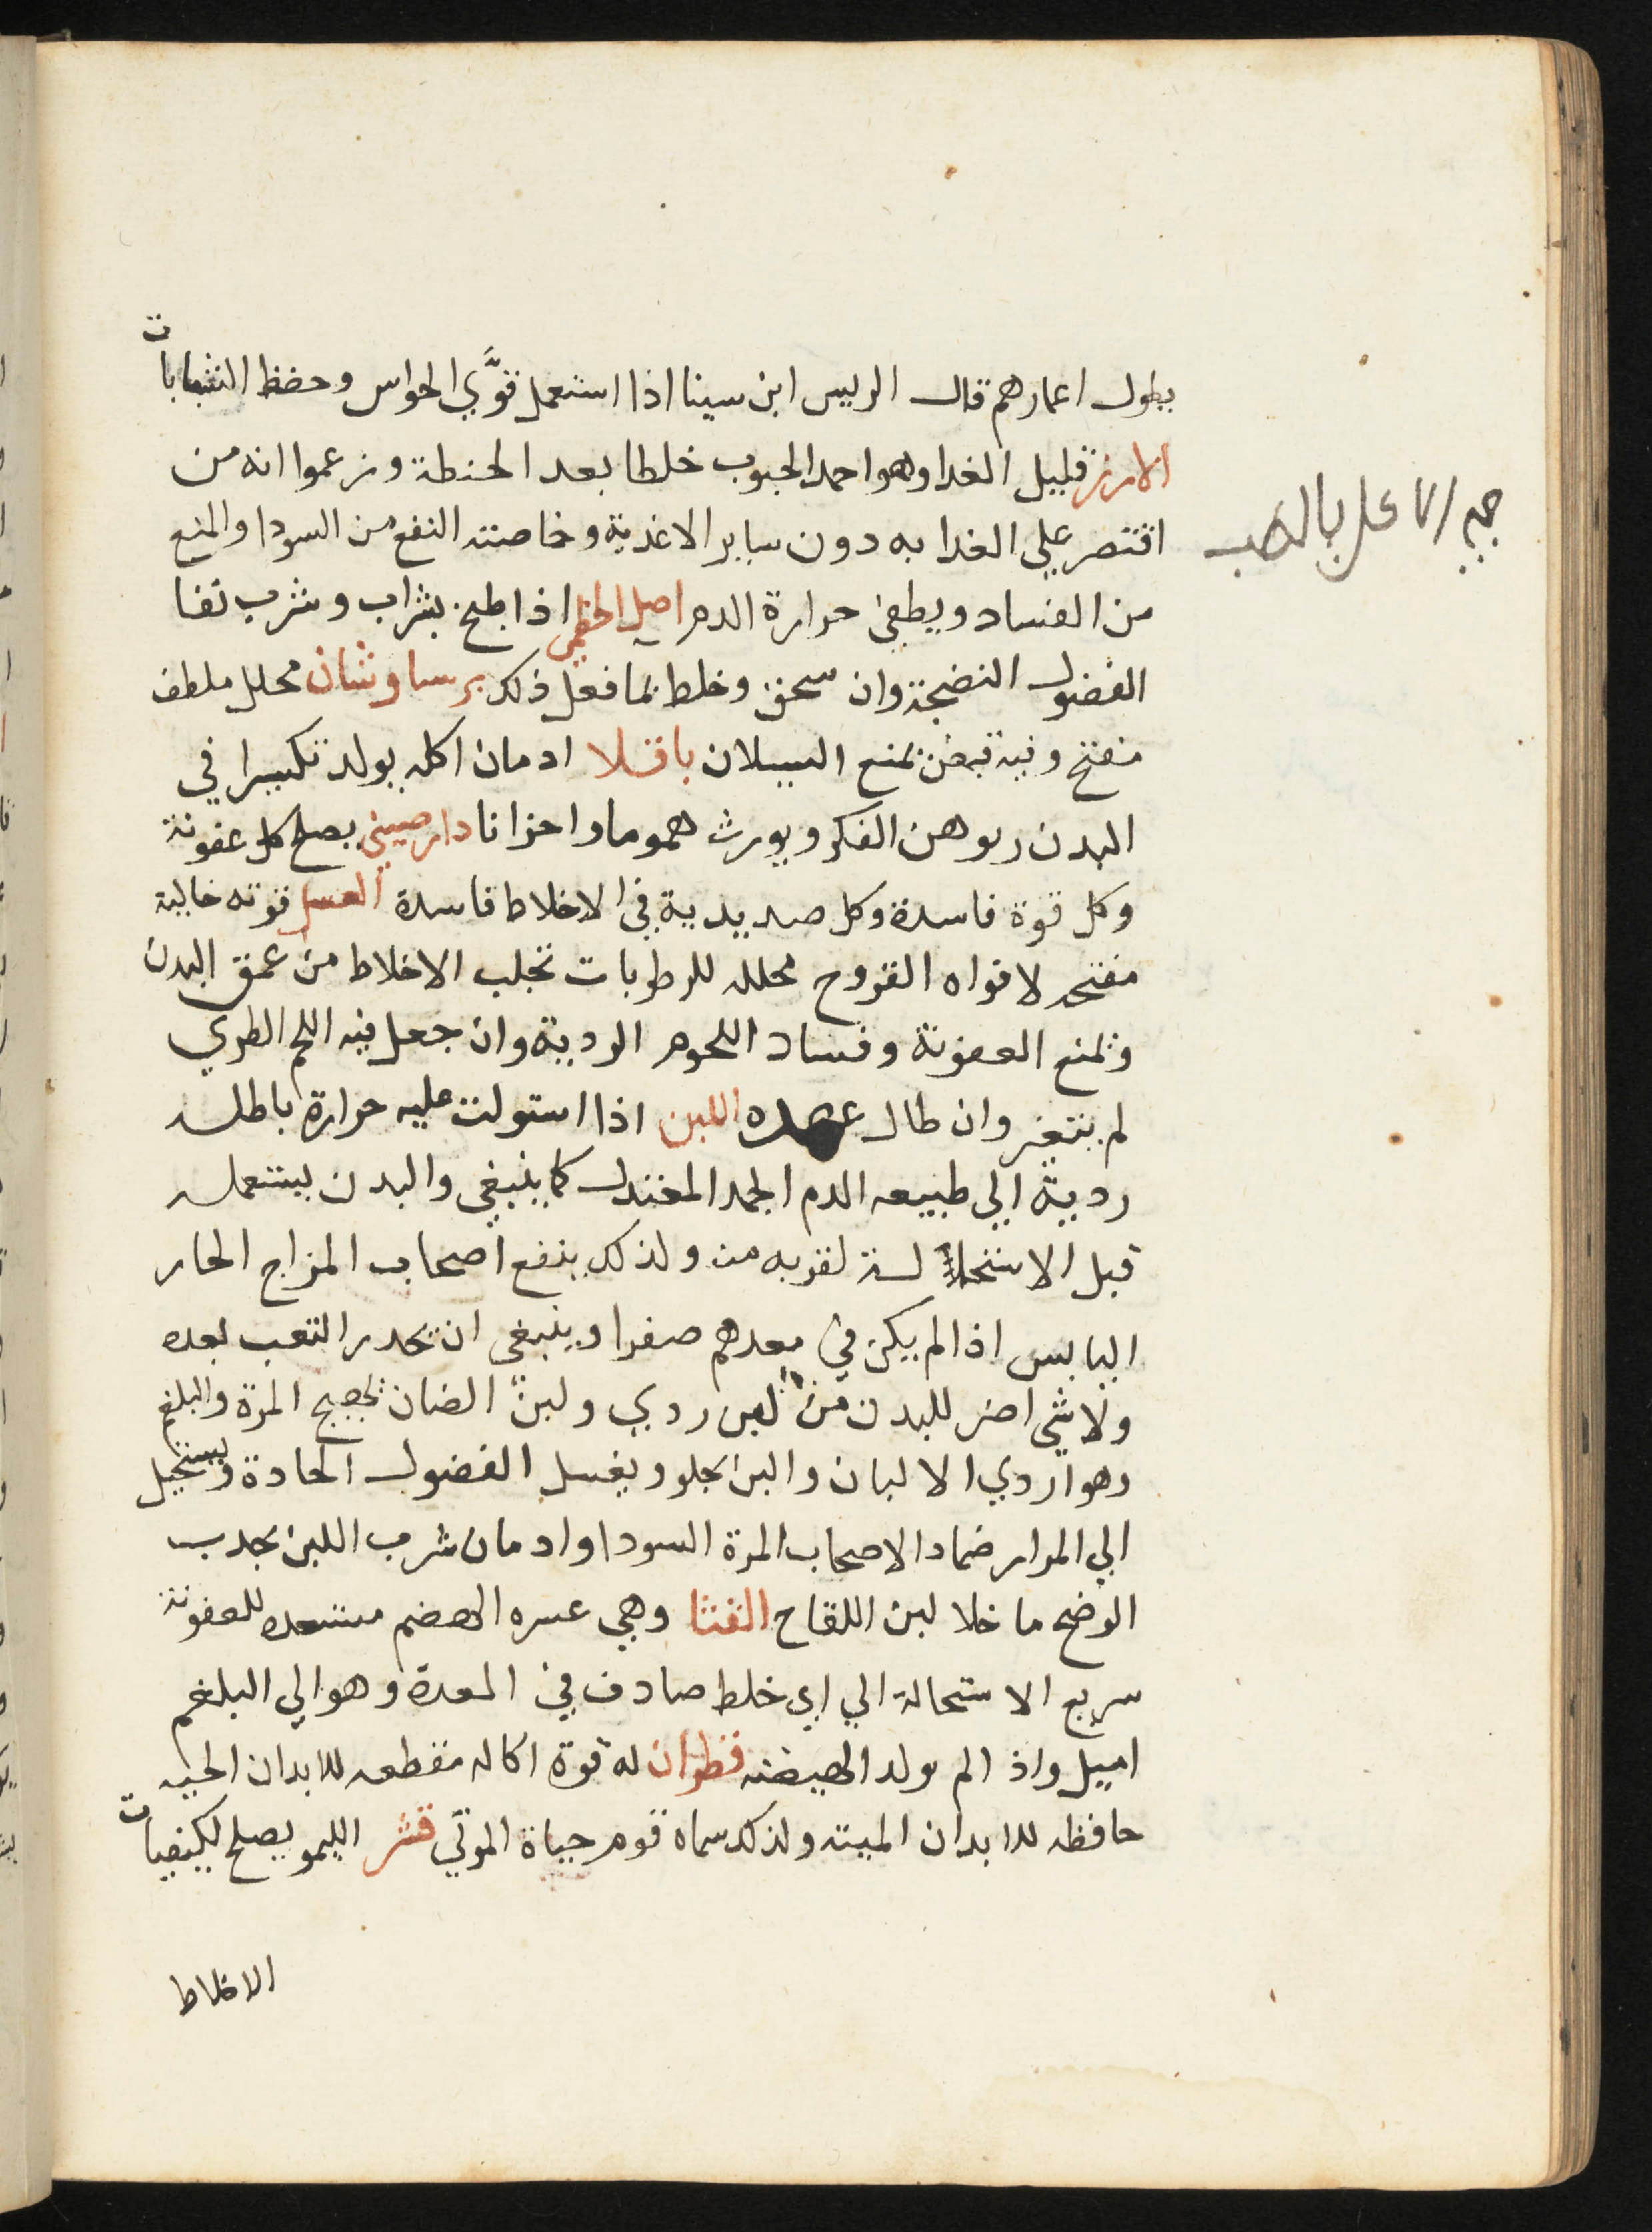 يطول اعمارهم قال الريس ابن سينا اذا استعمل قوَّي الحواس وحفظ الشبابات
الارز قليل الغدا وهو احمد الحبوب خلطا بعد الحنطة وزعموا انه من
اقتصر علي الغدا به دون ساير الاغدية وخاصته النفع من السودا والمنع
من الفساد ويطفي حرارة الدم اصل الخطمي اذا طبخ بشراب وشرب نفا
الفضول النضيجة وان سحق وخلط بما فعل ذلك برساوشان محلل ملطف
مفتح وفيه قبض يمنع السيلان باقلا ادمان اكله يولد تكسيرا في
البدن ويوهن الفكر ويورث هموما واحزانا دارصيني يصلح كل عفونة
وكل قوة فاسدة وكل صديدية في الاخلاط فاسدة العسل قوته جالية
مفتحه لافواه القروح محلله للرطوبات تجلب الاخلاط من عمق البدن
وتمنع العفونة وفساد اللحوم الردية وان جعل فيه اللحم الطري
لم يتغير وان طال عهده اللبن اذا استولت عليه حرارة باطله
ردية الي طبيعه الدم الجمد المعتدل كما ينبغي والبدن يستعمله
قبل الاستحالة لقربه منه ولذلك ينفع اصحاب المزاج الحار
اليابس اذا لم يكن في معدهم صفرا وينبغي ان يحدر التعب بعده
ولا شي اضر للبدن من لبن ردي ولبن الضان يهيج المرة والبلغم
وهو اردي الالبان والبن يجلو ويغسل الفضول الحادة ويستحيل
الي المرار ضمادا لاصحاب المرة السودا وادمان شرب اللبن يجدب
الوضح ما خلا لبن اللقاح القثا وهي عسره الهضم مستعده للعفونة
سريع الاستحالة الي اي خلط صادف في المعدة وهو الي البلغم
اميل واذا لم يولد الهيضه قطران له قوة اكاله مقطعه للابدان الحيه
حافظه للابدان الميته ولذلك سماه قوم حياة الموتي قشر الليمو يصلح لكيفيات
الاخلاط